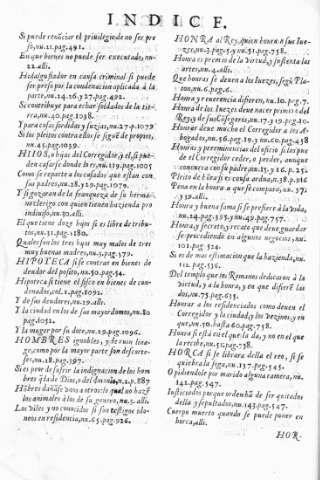 INDICE.
Si puede renũciar el privilegio de no ser pre
so, nu. 21. pag. 491.
En que bienes no puede ser executado, nu.
22. alli.
Hidalgo si en causa criminal si puede
ser preso por la condenacion aplicada à la
parte, nu. 26. 27. pag. 492.
Si contribuye para echar soldados de la tie-
rra, nu. 40. pag. 1038.
Y para cosas sordidas y suzias, nu. 27. p. 1079
Si los pleitos contra ellos se siguẽ de propios,
nu. 45. pag. 1039.
HIIOS, o hijas del Corregidor, y el si pue-
den casarse donde lo es, nu. 119. pag. 1005
Como se reparte a los casados que estan con
sus padres, nu. 28. pag. 1079.
Y si gozaran de la franqueza de su herma-
no clerigo con quien tienen hazienda pro
indiviso, nu. 30. alli.
El que tiene doze hijos si es libre de tribu-
tos, nu. 31. pag. 1180.
Quales son los tres hijos muy malos de tres
muy buenas madres, nu. 3. pag. 379.
HIPOTECA si se contrae en bienes de
deudor del posito, nu. 50. pag. 54.
Hipoteca si tiene el fisco en bienes de con-
denados, nu. 2. pag. 1092.
Y de sus deudores, nu. 29. alli.
Y la ciudad en los de sus mayordomos, nu. 80
pag.
Y la muger por su dote, nu. 29. pag. 1096.
HOMBRES iguables, y de buen linage,
como por la mayor parte son descorte-
ses, nu. 18. pag. 197.
Si es peor de sufrir la indignacion de los hom
bres q̃ la de Dios, o del demonio, n. 2. p. 887
los animales à los de su genero, nu. 3. alli.
Los viles y no conocidos si son testigos ido-
neos en residencia, nu. 65. pag. 926.
HONRA al Rey, quien honra à sus Iue-
zes, nu. 3. pag. 59. nu. 51. pag. 758.
Honra es premio de la virtud, y sustenta las
artes, nu. 4. alli.
Que honras se deven a los Iuezes, segũ Pla-
ton, nu. 6. pag. 6.
Honra y reverencia difieren, nu. 10. pag. 7.
Honra de los Iuezes deve nacer primero del
Rey, y de sus Cõsegeros, nu. 17. 319. pag. 10
Honras deve mucho el Corregidor a los A-
bogados, nu. 56. pag. 139. nu. 60. pag. 458
Honras y preeminencias del oficio si los pue
de el Corregidor ceder, o perder, aunque
convenga con su padre, nu. 25. 26. p. 251
Pleito de hõras si es causa ardua, n. 38. p. 916
Pena en la honra a que se compara, nu. 37.
y 39. alli.
Honra y buena fama si se prefiere a la vida,
nu. 24. pag. 395. nu. 49. pag. 757.
Honra, y secreto, y recato que deve guardar
se procediendo en algunos negocios, nu.
102. pag. 524.
Si es de mas estimacion que la hazienda, nu.
112. pag. 536.
Del templo que los Romanos dedicaron à la
virtud, y a la honra, y en que difierẽ las
dos, nu. 75. pag. 635.
Honrar a los residenciados como deven el
Corregidor y la ciudad, y los vezinos, y en
que, nu. 50. basta 60. pag. 758.
Honra si està en el que la da, y no en el que
la recibe, nu. 51. pag. 758.
HORCA si se librara della el reo, si se
quiebra la soga, nu. 137. pag. 545.
O pidiendole por marido alguna ramera, nu.
142. pag. 547.
Iusticiados porque ordenhũ de ser quitados
della y sepultados, nu. 143. pag. 547.
Cuerpo muerto quando se puede poner en
horca, alli.
HOR.